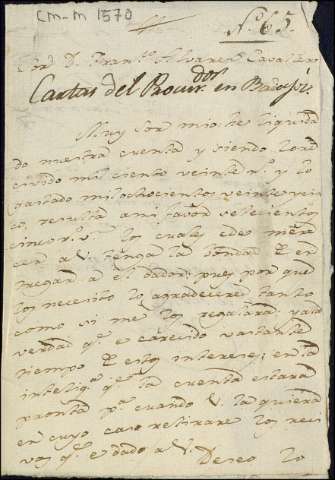 CM-M 1570
N.º 62.
Sor. D. Franco. Alvarez Cavallero
Cartas del Procurdor. en Badajoz
Muy Sor. mio he liquida
do nuestra cuenta y siendo lo re
civido mil ciento veinte rs. y lo
gastado mil ochocientos veinte y cin
co, resulta a mi favor setecientos
cinco rs. los cuales edo mere
cer a V. tenga la bondad de en
tregar a el dador; pues por que
los necesito lo agradeceré tanto
como si me los regalara: y a la
verdad qe. e carecido vastante
tiempo de estos interese; en la
inteliga. qe. la cuenta estará
pronta pa. cuando V. la quiera
en cuyo caso retirare los reci
vos qe. e dado a V.
Deseo lo